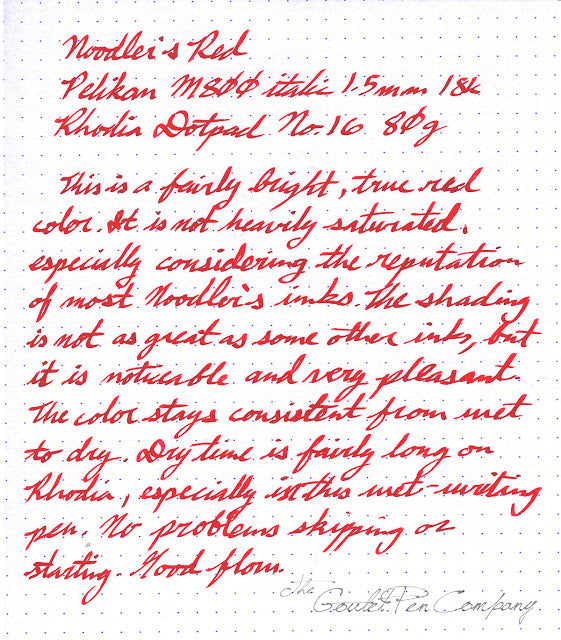 Noodler's Red
Pelikan M800 italic 1.5mm 18k
Rhodia Dotpad No.16 80g
This is a fairly bright, true red
color. It is not heavily saturated,
especially considering the reputation
of most Noodler's inks. The shading
is not as great as some other inks, but
it is noticable and very pleasant.
The color stays consistent from wet
to dry. Dry time is fairly long on
Rhodia, especially in this wet-writing
pen. No problems skipping or
starting. Good flow.
The Goulet Pen Company